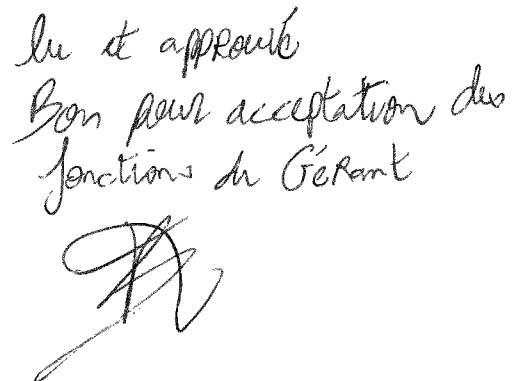 lu et approuvé
Bon pour acceptation des
fonctions de Gérant